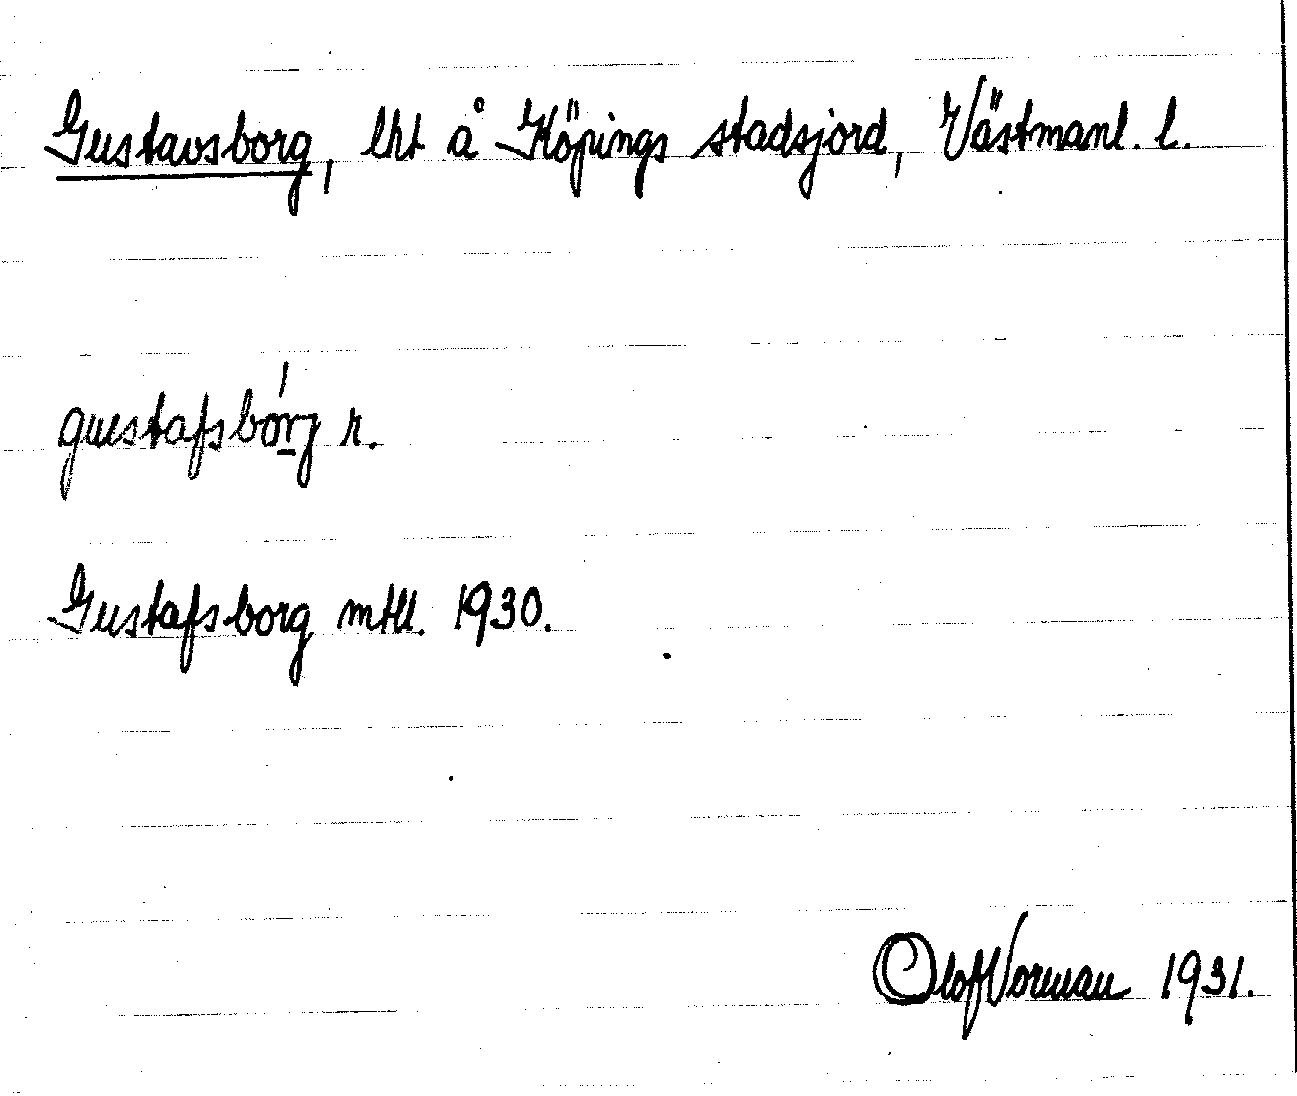 Gustavsborg, lht å Köpings stadsjord, Västmanl. l.
gustafsbórj r.
Gustafsborg mtll. 1930.
Olof Norman 1931.